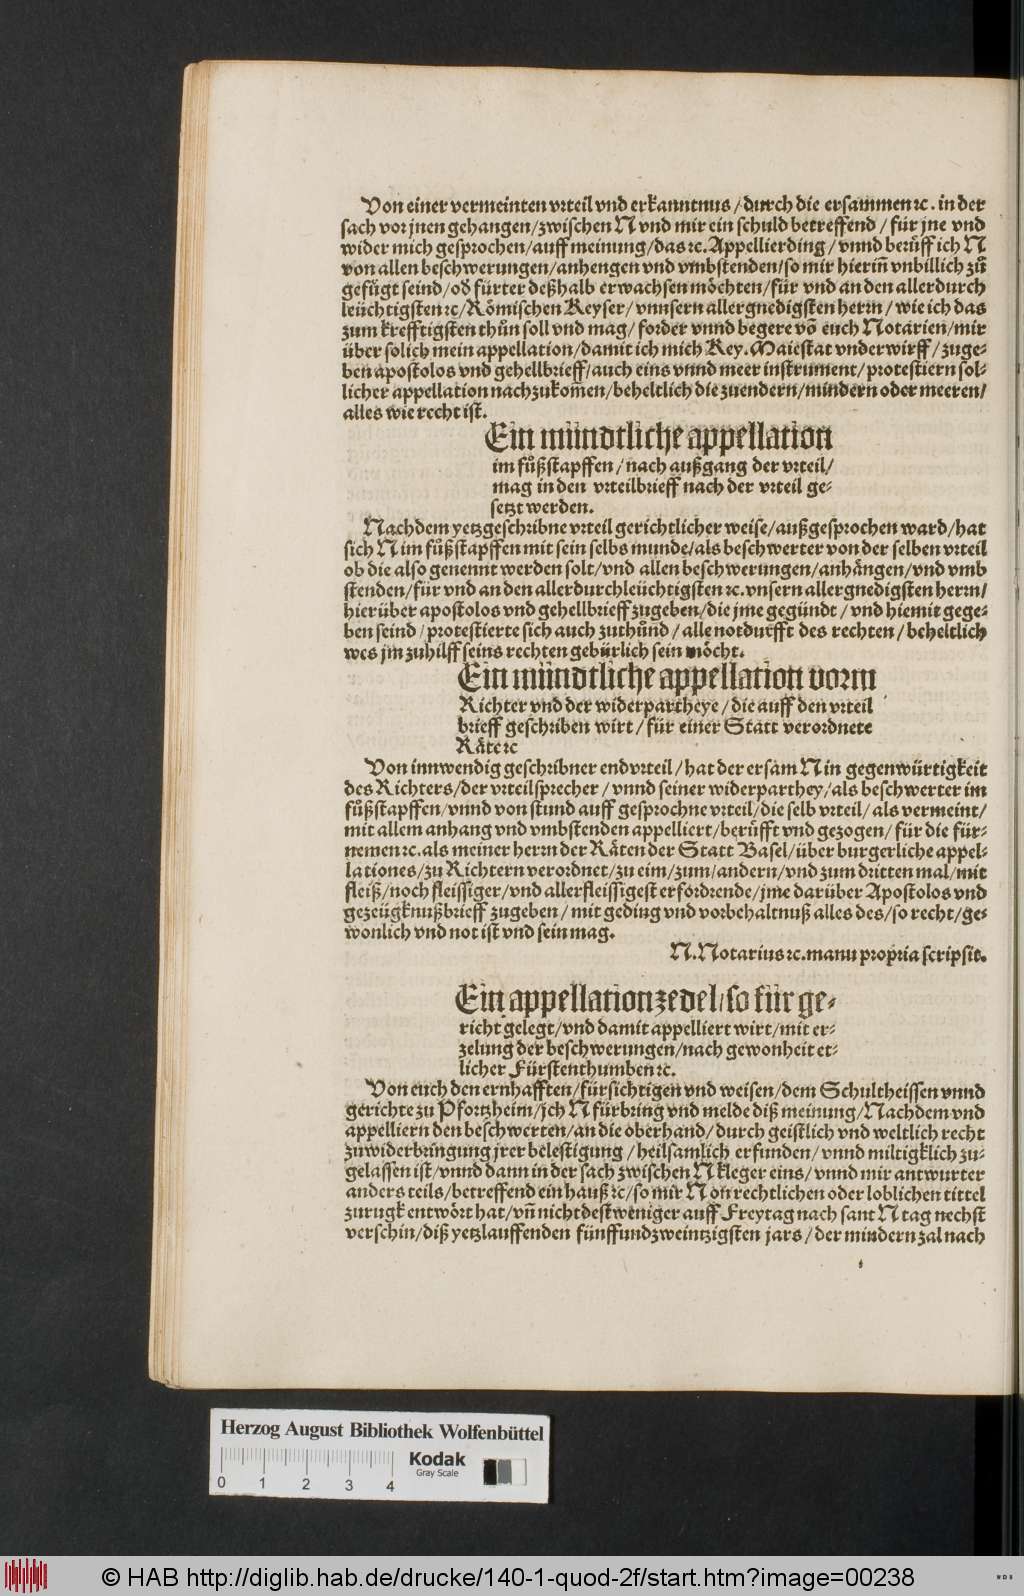 Von einer vermeinten vrteil vnd erkanntnus / durch die ersammen ⁊c. in der
sach vor jnen gehangen/zwischen N vnd mir ein schuld betreffend / für jne vnd
wider mich gesprochen/auff meinung/das ⁊c. Appellierding/ vnnd berüff ich N
von allen beschwerungen/anhengen vnd vmbstenden/so mir hieriñ vnbillich zů
gefügt seind/oď fürter deßhalb erwachsen möchten/für vnd an den allerdurch
leüchtigsten ⁊c/Römischen Keyser/ vnnsern allergnedigsten herrn / wie ich das
zum krefftigsten thůn soll vnd mag/ forder vnnd begere võ euch Notarien/mir
über solich mein appellation/damit ich mich Key. Maiestat vnderwirff/zuge⸗
ben apostolos vnd gehellbrieff/auch eins vnnd meer instrument/protestiern sol⸗
licher appellation nachzukom̃en/beheltlich die zuendern/mindern oder meeren/
alles wie recht ist.
Ein mündtliche appellation
im fůßstapffen / nach außgang der vrteil/
mag in den vrteilbrieff nach der vrteil ge⸗
setzt werden.
Nachdem yetzgeschribne vrteil gerichtlicher weise/außgesprochen ward/hat
sich N im fůßstapffen mit sein selbs munde/als beschwerter von der selben vrteil
ob die also genennt werden solt/vnd allen beschwerungen/anhängen/vnd vmb
stenden/für vnd an den allerdurchleüchtigsten ⁊c. vnsern allergnedigsten herrn/
hierüber apostolos vnd gehellbrieff zugeben/die jme gegündt / vnd hiemit gege⸗
ben seind / protestierte sich auch zuthůnd / alle notdurfft des rechten / beheltlich
wes jm zuhilff seins rechten gebürlich sein möcht.
Ein mündtliche appellation vorm
Richter vnd der widerpartheye / die auff den vrteil
brieff geschriben wirt / für einer Statt verordnete
Räte ⁊c
Von innwendig geschribner endvrteil / hat der ersam N in gegenwürtigkeit
des Richters/der vrteilsprecher / vnnd seiner widerparthey/als beschwerter im
fůßstapffen/vnnd von stund auff gesprochne vrteil/die selb vrteil/ als vermeint/
mit allem anhang vnd vmbstenden appelliert/berüfft vnd gezogen/ für die für⸗
nemen ⁊c. als meiner herrn der Räten der Statt Basel/über burgerliche appel⸗
lationes/zu Richtern verordnet/zu eim/zum/andern/vnd zum dritten mal/mit
fleiß/noch fleissiger/vnd allerfleissigest erfordrende/jme darüber Apostolos vnd
gezeügknußbrieff zugeben / mit geding vnd vorbehaltnuß alles des/so recht/ge⸗
wonlich vnd not ist vnd sein mag.
N. Notarius ⁊c. manu propria scripsit.
Ein appellationzedel/so für ge⸗
richt gelegt/vnd damit appelliert wirt/mit er⸗
zelung der beschwerungen/nach gewonheit et⸗
licher Fürstenthumben ⁊c.
Von euch den ernhafften/fürsichtigen vnd weisen/dem Schultheissen vnnd
gerichte zu Pfortzheim/jch N fürbring vnd melde diß meinung/Nachdem vnd
appelliern den beschwerten/an die oberhand/durch geistlich vnd weltlich recht
zuwiderbringung jrer belestigung / heilsamlich erfunden/vnnd miltigklich zu⸗
gelassen ist/vnnd dann in der sach zwischen N kleger eins/ vnnd mir antwurter
anders teils/betreffend ein hauß ⁊c/so mir N on rechtlichen oder loblichen tittel
zurugk entwört hat/vñ nichtdestweniger auff Freytag nach sant N tag nechst
verschin/diß yetzlauffenden fünffundzweintzigsten jars / der mindern zal nach
Herzog August Bibliothek Wolfenbüttel
Kodak
Gray Scale
0 1 2 3 4
© HAB http://diglib.hab.de/drucke/140-1-quod-2f/start.htm?image=00238